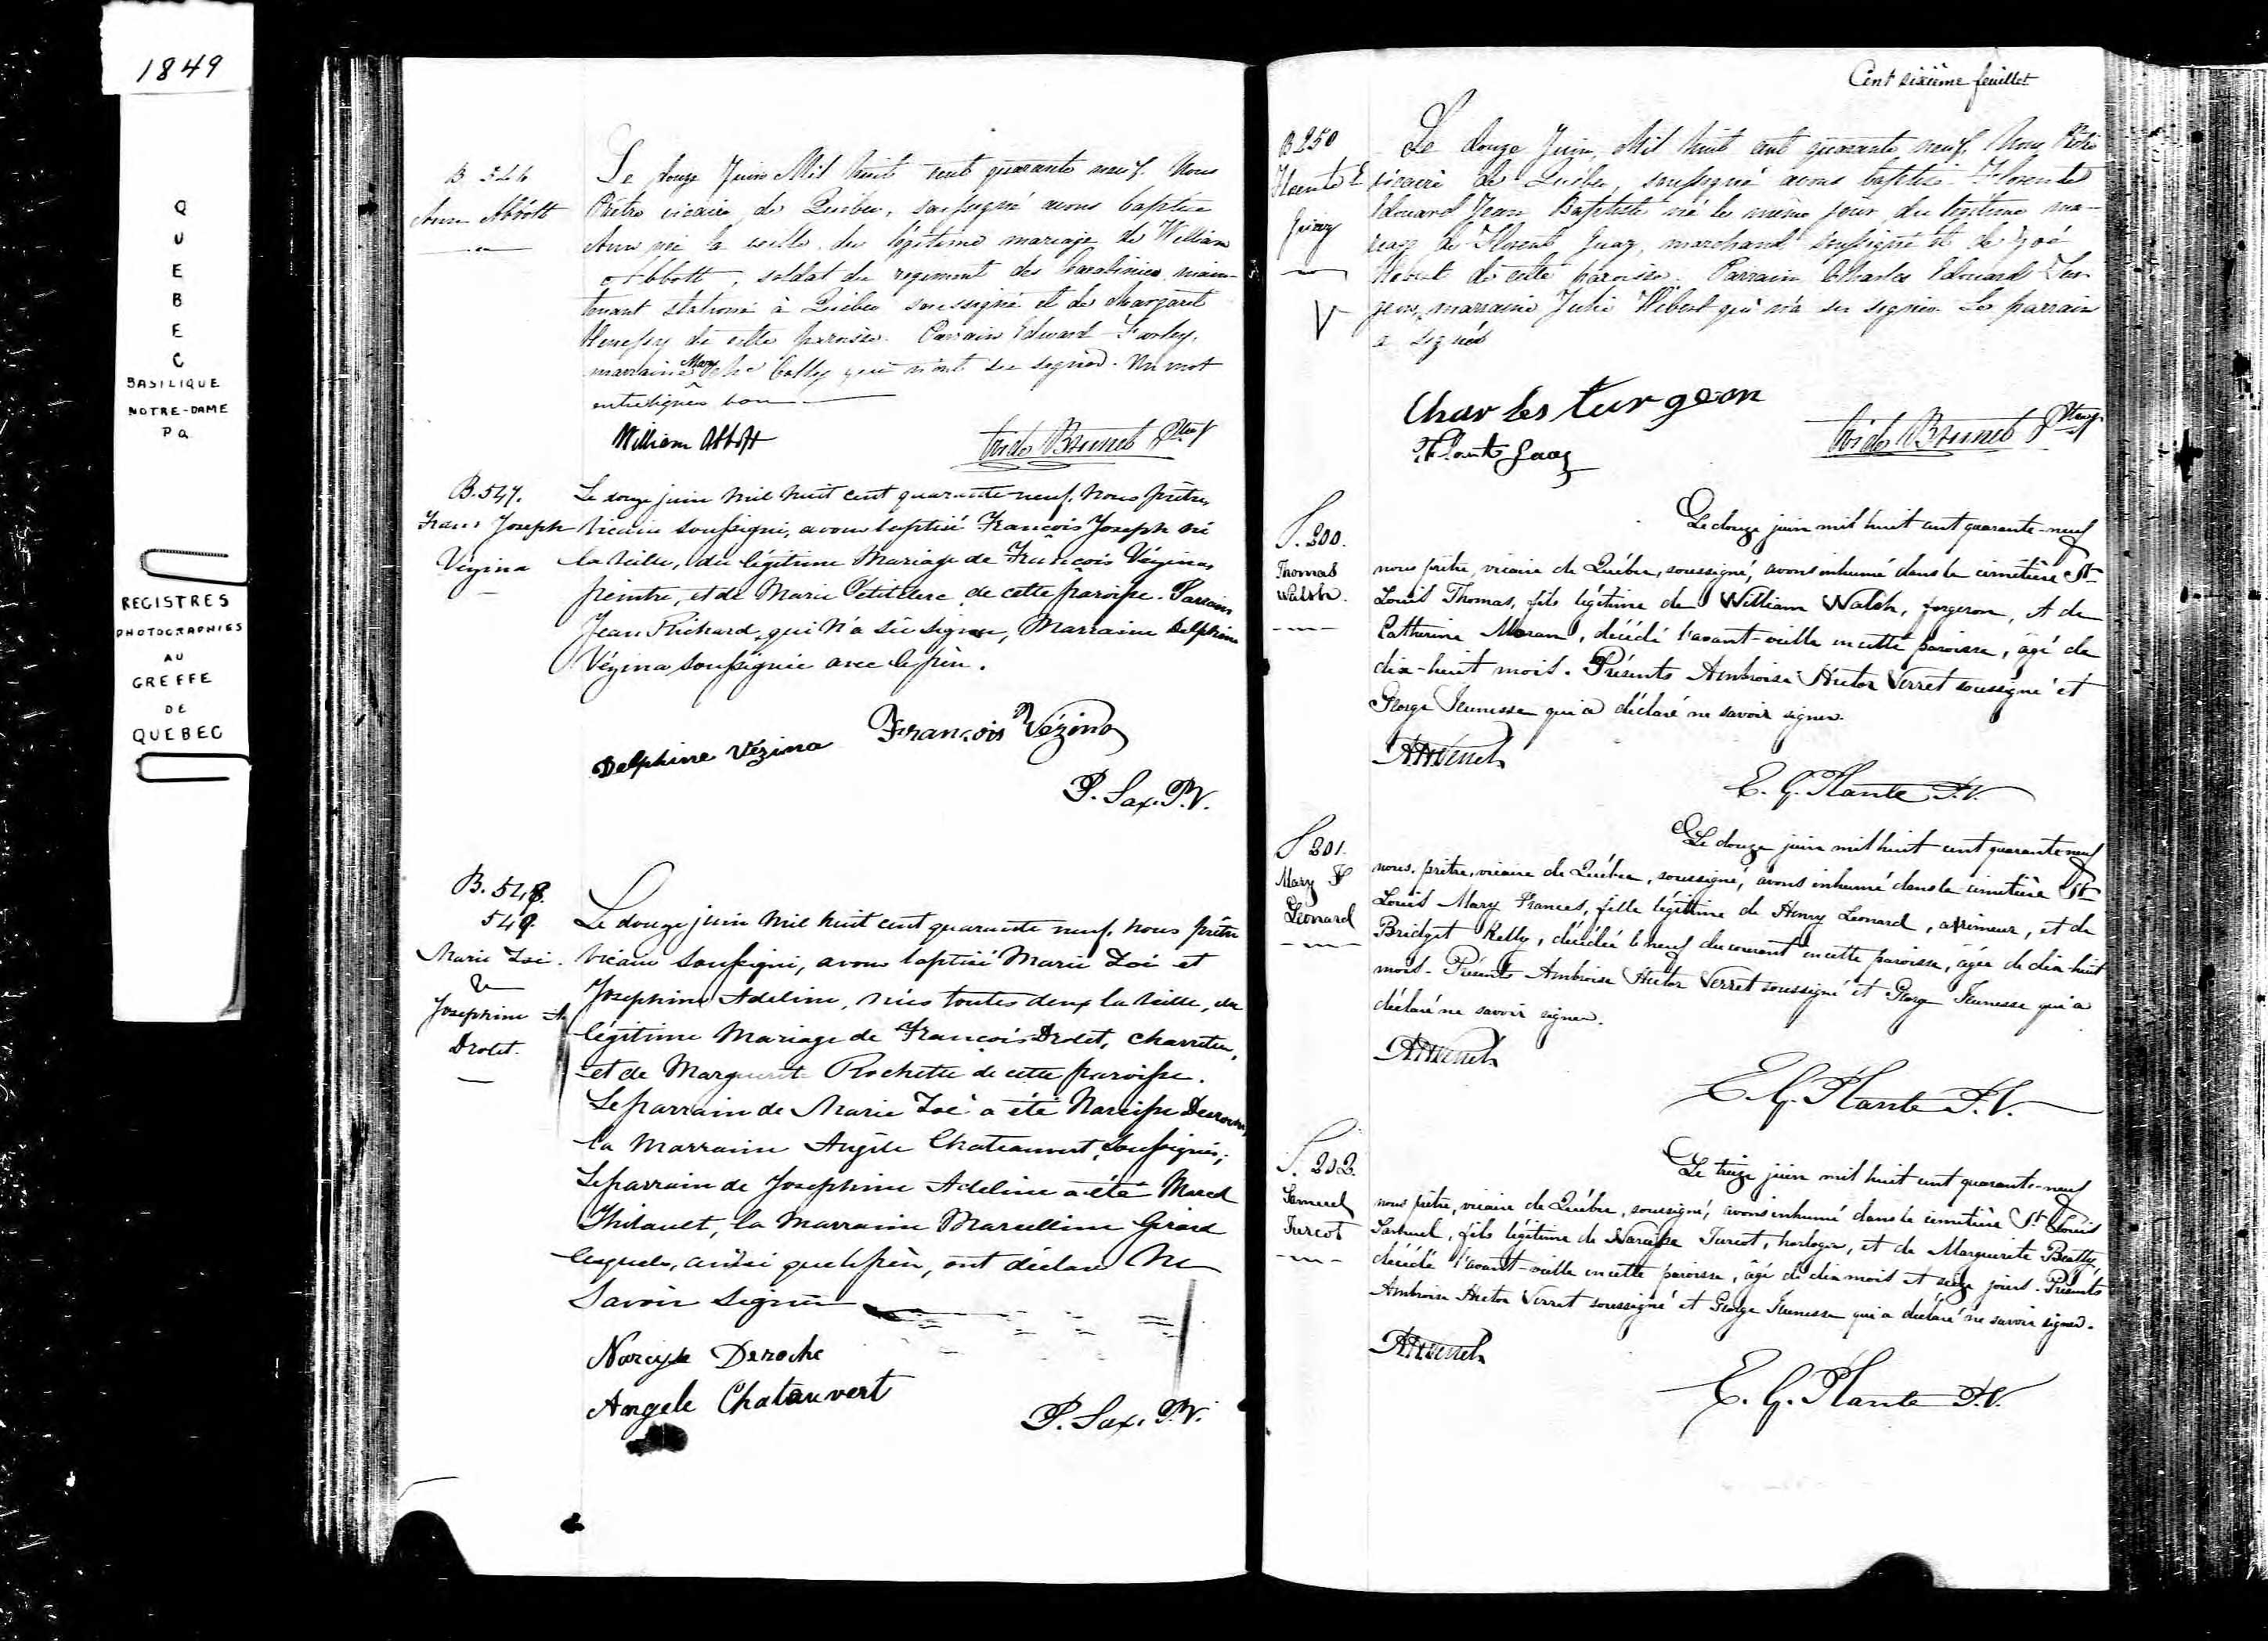 1849
Q
U
E
B
E
C
BASILIQUE
NOTRE-DAME
PQ
REGISTRES
PHOTOGRAPHIES
AU
GREFFE
DE
QUEBEC
B 546
Anne Abbott
Le douze Juin Mil huit cent quarante neuf. Nous
Prêtre vicaire de Québec, soussigné avons baptisé
Anne née la veille du légitime mariage de William
Abbott, soldat du regiment des Carabiniers main-
tenant stationé à Québec soussigné et de Margaret
de cette paroisse. Parrain Edward Farley,
marraine Mary qui n'ont su signer. Un mot
entreligne bon
William Abbott
Brunet Ptre V
B. 547.
Frans Joseph
Vézina
Le douze juin mil huit cent quarante-neuf, nous prêtre,
vicaire soussigné, avons baptisé François Joseph né
la veille, du légitime Mariage de François Vézina,
peintre, et de Marie Petitclerc de cette paroisse. Parrain
Jean Richard, qui n'a su signer, Marraine Delphine
Vézina soussignée avec le père.
Delphine Vézina François Vézina
P. Sax. P.V.
B. 548.
549.
Marie Zoé.
&
Josephine A.
Drolet.
Le douze juin mil huit cent quarante neuf, nous prêtre
vicaire soussigné, avons baptisé Marie Zoé et
Josephine Adeline, nées toutes deux la veille, du
légitime Mariage de François Drolet, charretier,
et de Marguerite Rochette de cette paroisse.
Le parrain de Marie Zoé a été Narcisse
la Marraine Angèle Chateauvert, soussignés;
Le parrain de Josephine Adeline a été Marcel
Thibault, la Marraine Marcelline Girard
lesquels, ainsi que le père, ont déclaré ne
savoir signer
Narcisse Deroche
Angele Chatauvert
P. Sax. P.V.
Cent sixième feuillet
B 250
Florente E
Guay
V
Le douze Juin, Mil huit cent quarante neuf. Nous Prêtre
vicaire de Québec, soussigné avons baptisé Florente
Edouard Jean Baptiste né le même jour du légitime ma-
riage de Florent Guay, marchand soussigné et de Zoé
Hebert de cette paroisse. Parrain Charles Edouard Tur-
geon, marraine Julie Hébert qui n'a su signer. Le parrain
a signé
Charles turgeon
Guay
Brunet Ptre V
S. 200.
Thomas
Walsh.
Le douze juin mil huit cent quarante-neuf
nous prêtre, vicaire de Québec, soussigné, avons inhumé dans le cimetière St-
Louis Thomas, fils légitime de William Walsh, forgeron, et de
Catherine Moran, décédé l'avant-veille en cette paroisse, âgé de
dix-huit mois. Présents Ambroise Hector Verret soussigné et
George Jeunesse qui a déclaré ne savoir signer.
AHVerret
E. G. Plante P.V.
S 201.
Mary F
Leonard
Le douze juin mil huit cent quarante neuf
nous, prêtre, vicaire de Québec, soussigné, avons inhumé dans le cimetière St-
Louis Mary Frances, fille légitime de Henry Leonard, arrimeur, et de
Bridget Kelly, décédée le neuf du courant en cette paroisse, âgée de dix-huit
mois. Présents Ambroise Hector Verret soussigné et George Jeunesse qui a
déclaré ne savoir signer.
AHVerret
E. G. Plante P.V.
S. 202.
Samuel
Turcot
Le treize juin mil huit cent quarante-neuf
nous prêtre, vicaire de Québec, soussigné, avons inhumé dans le cimetière St. Louis
Samuel, fils légitime de Narcisse Turcot, horloger, et de Marguerite Beatty,
décédé l'avant-veille en cette paroisse, âgé de dix mois et seize jours. Présents
Ambroise Hector Verret soussigné et George Jeunesse qui a déclaré ne savoir signer.
AHVerret
E. G. Plante P.V.